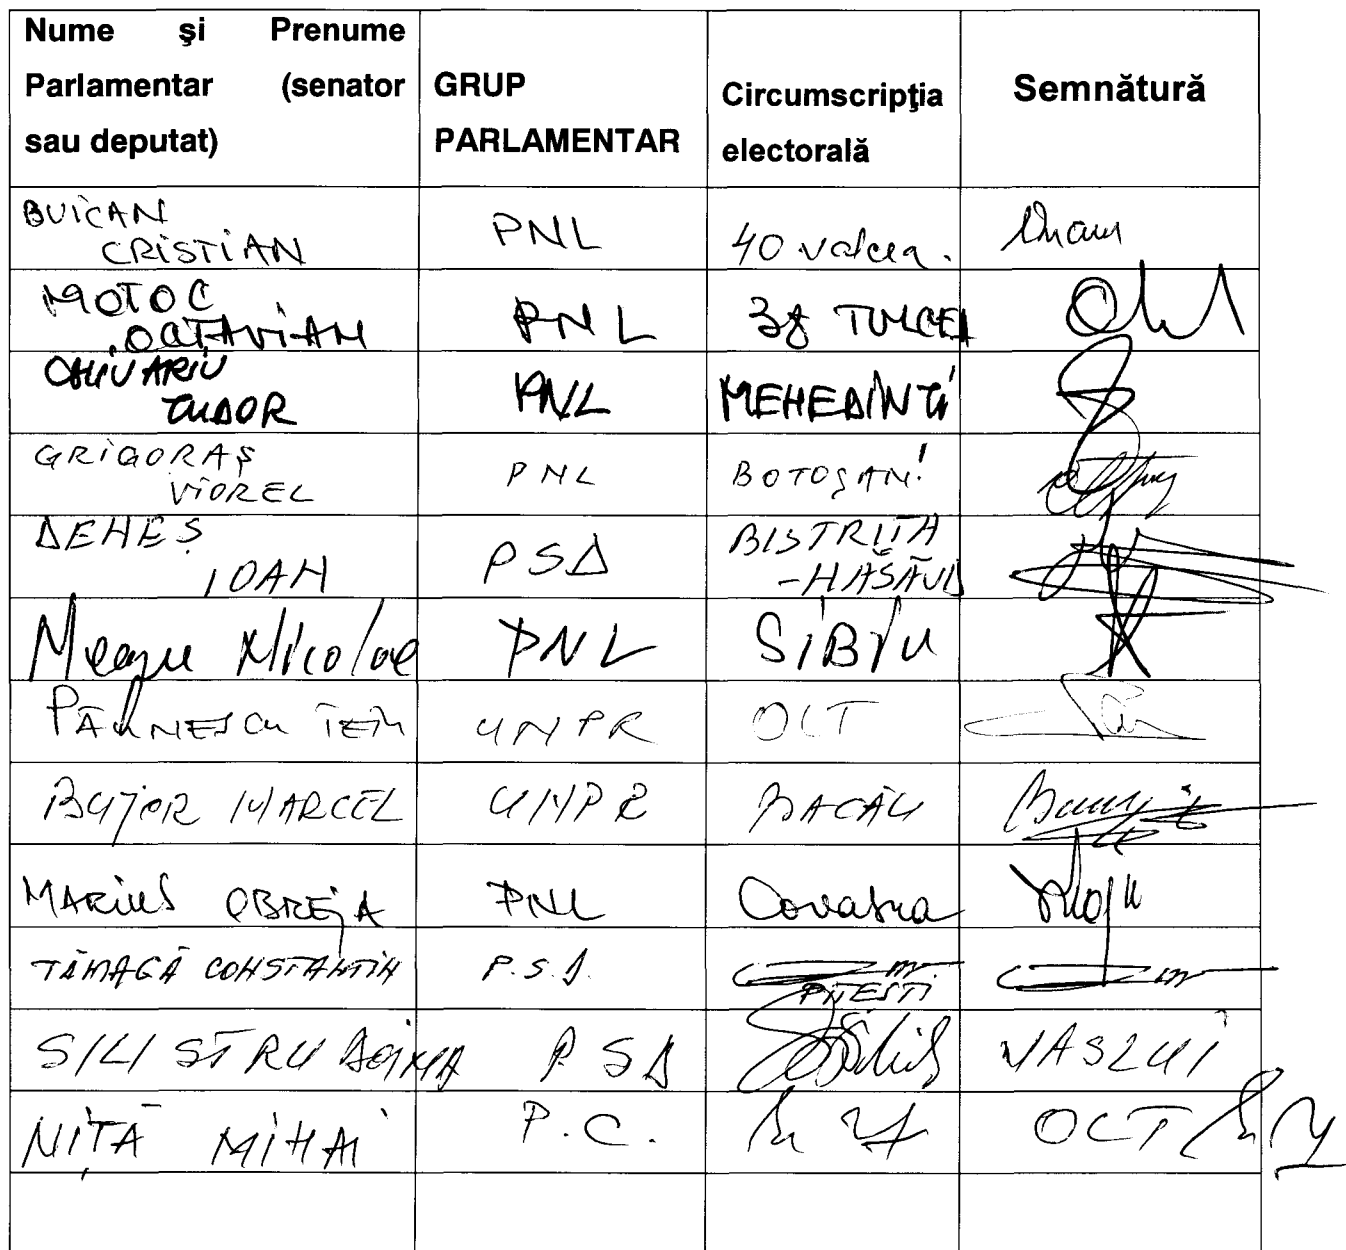 Nume şi Prenume
Parlamentar (senator
sau deputat)
GRUP
PARLAMENTAR
Circumscripţia
electorală
Semnătură
BUICAN
CRISTIAN
PNL
40 valcea.
MOTOC
OCTAVIAN
PNL
38 TULCEA
CHIUARIU
TUDOR
PNL
MEHEDINTI
GRIGORAŞ
VIOREL
PNL
BOTOŞANI
DENEŞ
IOAN
PSD
BISTRITA
-NĂSĂUD
Neagu Nicolae
PNL
SIBIU
UNPR
OLT
BUJOR MARCEL
UNPR
BACĂU
MARIUS OBREJA
PNL
Covasna
TĂMAGĂ CONSTANTIN
P.S.D.
PITESTI
SILISTRU DOINA
PSD
VASLUI
NIŢĂ MIHAI
P.C.
OLT